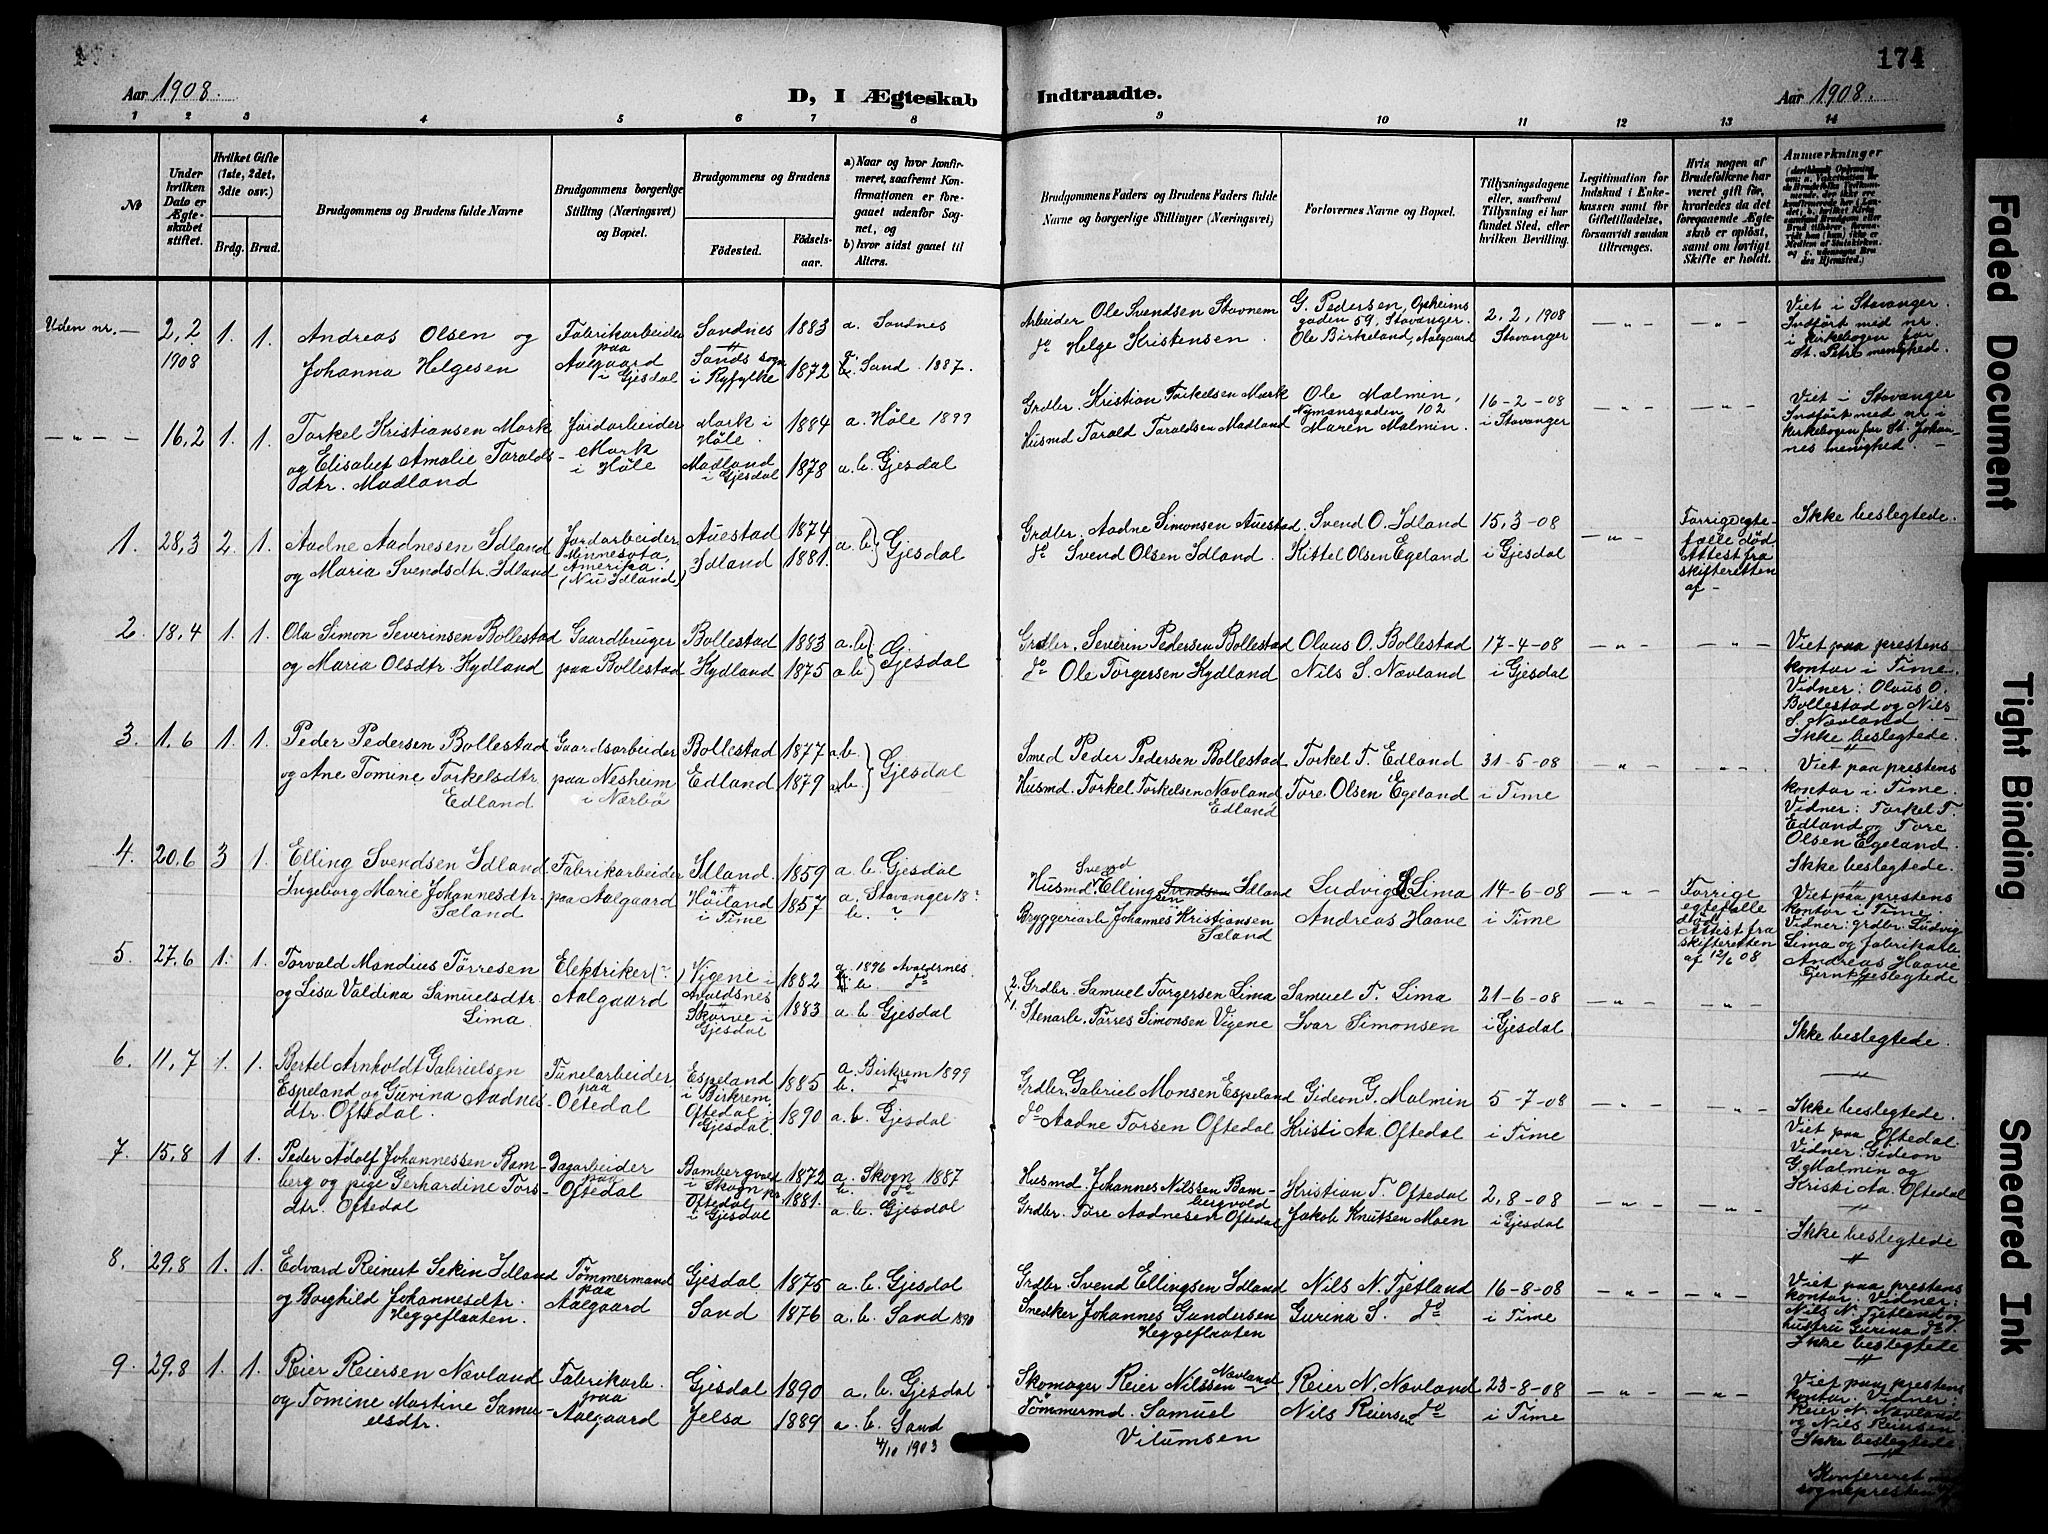 174
Aar 1908.
D, I Ægteskab Indtraadte.
Aar 1908.
1 2 3 4 5 6 7 8 9 10 11 12 13 14
№
Under hvilken Dato er Ægteskabet stiftet.
Hvilket Gifte (1ste, 2det, 3die osv.)
Brdg. Brud.
Brudgommens og Brudens fulde Navne
Brudgommens borgerlige Stilling (Næringsvei) og Bopæl.
Brudgommens og Brudens
Fødested.
Fødselsaar.
a) Naar og hvor konfirmeret, saafremt Konfirmationen er foregaaet udenfor Sognet, og
b) hvor sidst gaaet til Alters.
Brudgommens Faders og Brudens Faders fulde Navne og borgerlige Stillinger (Næringsvei)
Forlovernes Navne og Bopæl.
Tillysningsdagene eller, saafremt Tillysning ei har fundet Sted, efter hvilken Bevilling.
Legitimation for Indskud i Enkekassen samt for Giftetilladelse, forsaavidt saadan tiltrænges.
Hvis nogen af Brudefolkene har været gift før, hvorledes da det foregaaende Ægteskab er opløst, samt om lovligt Skifte er holdt.
Anmærkninger
Uden nr. —
2,2
1908
1. 1.
Andreas Olsen og
Johanna Helgesen
Fabrikarbeider
paa
Aalgaard
i Gjesdal
Sandnes
Sands sogn
i Ryfylke
1883
1872
a. Sandnes
Sand 1887.
Arbeider Ole Svendsen Stavnem
do Helge Kristensen.
G. Pedersen,
gaden 59, Stavanger.
Ole Birkeland, Aalgaard
2, 2, 1908
Stavanger
— „ —
— „ —
Viet i Stavanger.
Indført med nr.
i kirkebogen for
St. Petri menighed.
— „ — „ —
16,2 1. 1.
Torkel Kristiansen Mork
og Elisabet Amalie Taralds-
dtr. Madland
Jordarbeider
Mork
i Høle
Mork i
Høle.
Madland
i Gjesdal
1884
1878
a. Høle 1899
a. b. Gjesdal
Grdbr. Kristian Torkelsen Mork
Husmd Tarald Taraldsen Madland
Ole Malmin,
Nymansgaden 102
Maren Malmin.
16-2-08
i Stavanger
— „ —
— „ —
Viet i Stavanger
Indført med nr i
kirkebogen for St. Johan-
nes menighed. —
1. 28,3 2. 1.
Aadne Aadnesen Idland
og Maria Svendsdtr. Idland
Jordarbeider
Minnesota,
Amerika.
(Nu Idland)
Auestad
Idland
1874
1881.
a. b.} Gjesdal
Grdbr. Aadne Simonsen Auestad.
do Svend Olsen Idland.
Svend O. Idland
Kittel Olsen Egeland
15,3-08
i Gjesdal
— „ —
Forrige egte-
fælle død
Attest fra
skifteretten
af —
Ikke beslegtede.
2. 18,4 1. 1.
Ola Simon Severinsen Bollestad
og Maria Olsdtr. Kydland
Gaardbruger
paa Bollestad
Bollestad
Kydland
1883
1875
a. b.
a. b.
} Gjesdal
Grdbr. Severin Pedersen Bollestad
do Ole Torgersen Kydland
Olaus O. Bollestad
Nils S. Nævland
17-4-08
i Gjesdal
— „ —
— „ —
Viet paa prestens
kontor i Time.
Vidner: Olaus O.
Bollestad og Nils
S. Nævland. —
Ikke beslegtede.
3. 1,6 1. 1.
Peder Pedersen Bollestad
og Ane Tomine Torkelsdtr
Edland
Gaardsarbeider
paa Nesheim
i Nærbø
Bollestad
Edland
1877
1879
a. b.
a. b.
} Gjesdal
Smed Peder Pedersen Bollestad
Husmd. Torkel Torkelsen Nævland
Edland
Torkel T. Edland
Tore Olsen Egeland
31-5-08
i Time
— „ —
— „ —
Viet paa prestens
kontor i Time.
Vidner: Torkel T.
Edland og Tore
Olsen Egeland.
Ikke beslegtede.
4. 20,6 3 1.
Elling Svendsen Idland
Ingeborg Marie Johannesdtr.
Sæland
Fabrikarbeider
paa Aalgaard
Idland.
Høiland
i Time
1859
1857
a. b. Gjesdal
a. Stavanger 18?
b. ?
Svend
Husmd Ellingsen Svendsen Idland
Bryggeriarb. Johannes Kristiansen
Sæland
Ludvig Lima
Andreas Haave
14-6-08
i Time
— „ —
Forrige
egtefælle
død
Attest fra
skifteretten
af 12/6 08
Viet paa prestens
kontor i Time.
Vidner: grdbr. Ludvig
Lima og fabrikarb.
Andreas Haave
Fjernt beslegtede
5. 27,6 1. 1.
Torvald Mandius Tørresen
og Lisa Valdina Samuelsdtr
Lima
Elektriker
Aalgaard
Vigene i
Avaldsnes
Skurve i
Gjesdal
1882
1883
a. 1896 Avaldsnes.
b. do
a. b. Gjesdal
2. Grdbr. Samuel Torgersen Lima
1. Stenarb. Tørres Simonsen Vigene
Samuel T. Lima
Ivar Simonsen
21-6-08
i Gjesdal
— „ —
— „ —
Ikke beslegtede.
6. 11,7 1. 1.
Bertel Arnholdt Gabrielsen
Espeland og Gurina Aadnes-
dtr. Oftedal.
Tunelarbeider
paa
Oltedal
Espeland
i Birkrem
Oftedal i
Gjesdal.
1885
1890
a. Birkrem 1899
b. do
a. b. Gjesdal
Grdbr. Gabriel Monsen Espeland
do Aadne Torsen Oftedal
Gideon G. Malmin
Kristi Aa. Oftedal
5-7-08
i Time
— „ —
— „ —
Ikke beslegtede.
Viet paa Oftedal
Vidner: Gideon
G. Malmin og
Kristi Aa. Oftedal
7. 15,8 1 1.
Peder Adolf Johannessen Bam-
berg og pige Gerhardine Tors-
dtr. Oftedal
Dagarbeider
paa
Oftedal
Bambergvold
i Skogn
Oftedal
i Gjesdal
1872
1881.
a. Skogn 1887
b. do
a. b. Gjesdal
Husmd. Johannes Nilssen Bam-
bergvold
Grdbr. Tore Aadnesen Oftedal
Kristian T. Oftedal
Jakob Knutsen Moen
2,8-08
i Gjesdal
— „ —
— „ —
Ikke beslegtede
8. 29,8 1. 1.
Edvard Reinert Sekin Idland
og Borghild Johannesdtr.
Heggeflaaten.
Tømmermand
paa
Aalgaard
Gjesdal
Sand
1875
1876
a. b. Gjesdal
a. b. Sand 1890
Grdbr. Svend Ellingsen Idland
Snedker Johannes Gundersen
Heggeflaaten
Nils N. Tjetland
Gurina S. do
16-8-08
i Time
— „ —
— „ —
Viet paa prestens
kontor. Vidner:
Nils N. Tjetland og
hustru Gurina do.
Ikke beslegtede
9. 29,8 1. 1.
Reier Reiersen Nævland
og Tomine Martine Samu-
elsdtr.
Fabrikarb.
paa
Aalgaard
Gjesdal
Jelsa
1890
1889
a. b. Gjesdal
a. b. Sand
4/10 1903
Skomager Reier Nilssen Nævland
Tømmermd. Samuel
Vilumsen
Reier N. Nævland
Nils Reiersen do
23-8-08
i Time
— „ —
— „ —
Viet paa prestens
kontor. Vidner:
Reier N. Nævland
og Nils Reiersen
Ikke beslegtede
Konfereret
sognepresten
Faded Document
Tight Binding
Smeared Ink